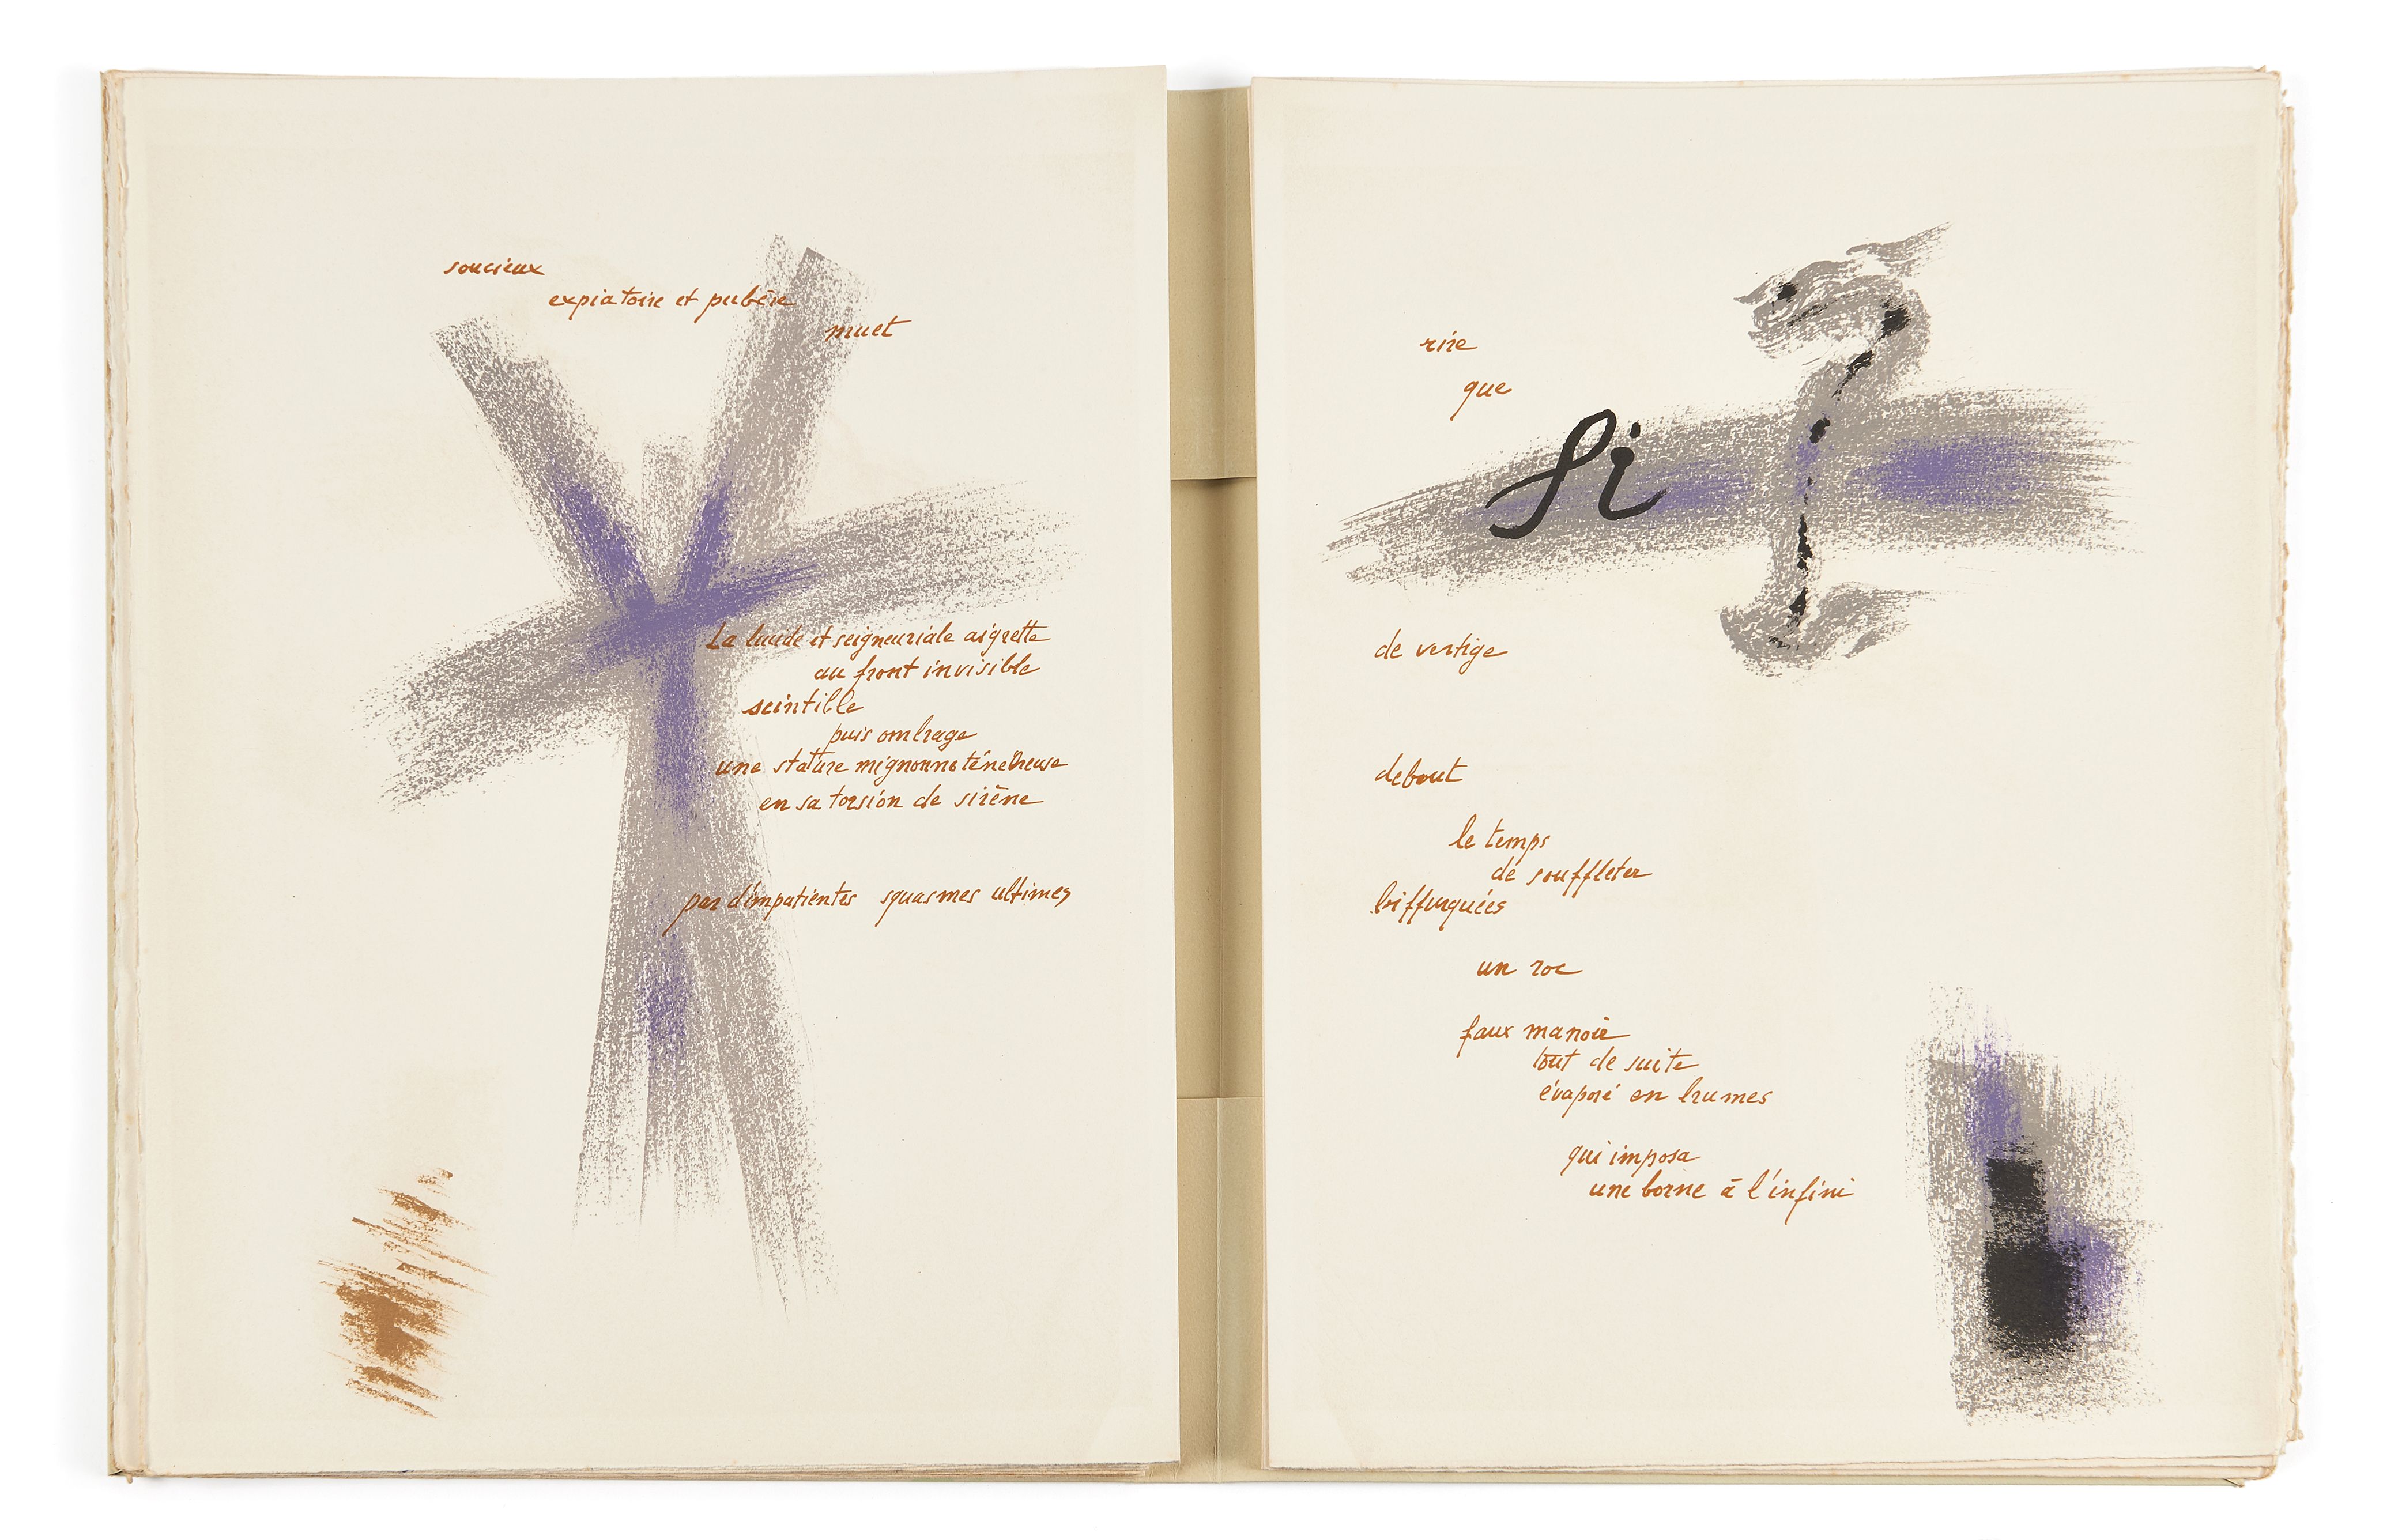 soucieux
expiatoire et pubère
muet
La lucide et seigneuriale aigrette
au front invisible
scintille
puis ombrage
une stature mignonne ténébreuse
en sa torsion de sirène
par d'impatientes squasmes ultimes
rire
que
Si
de vertige
debout
le temps
de souffleter
biffurquées
un roc
faux manoir
tout de suite
évaporé en brumes
qui imposa
une borne à l'infini